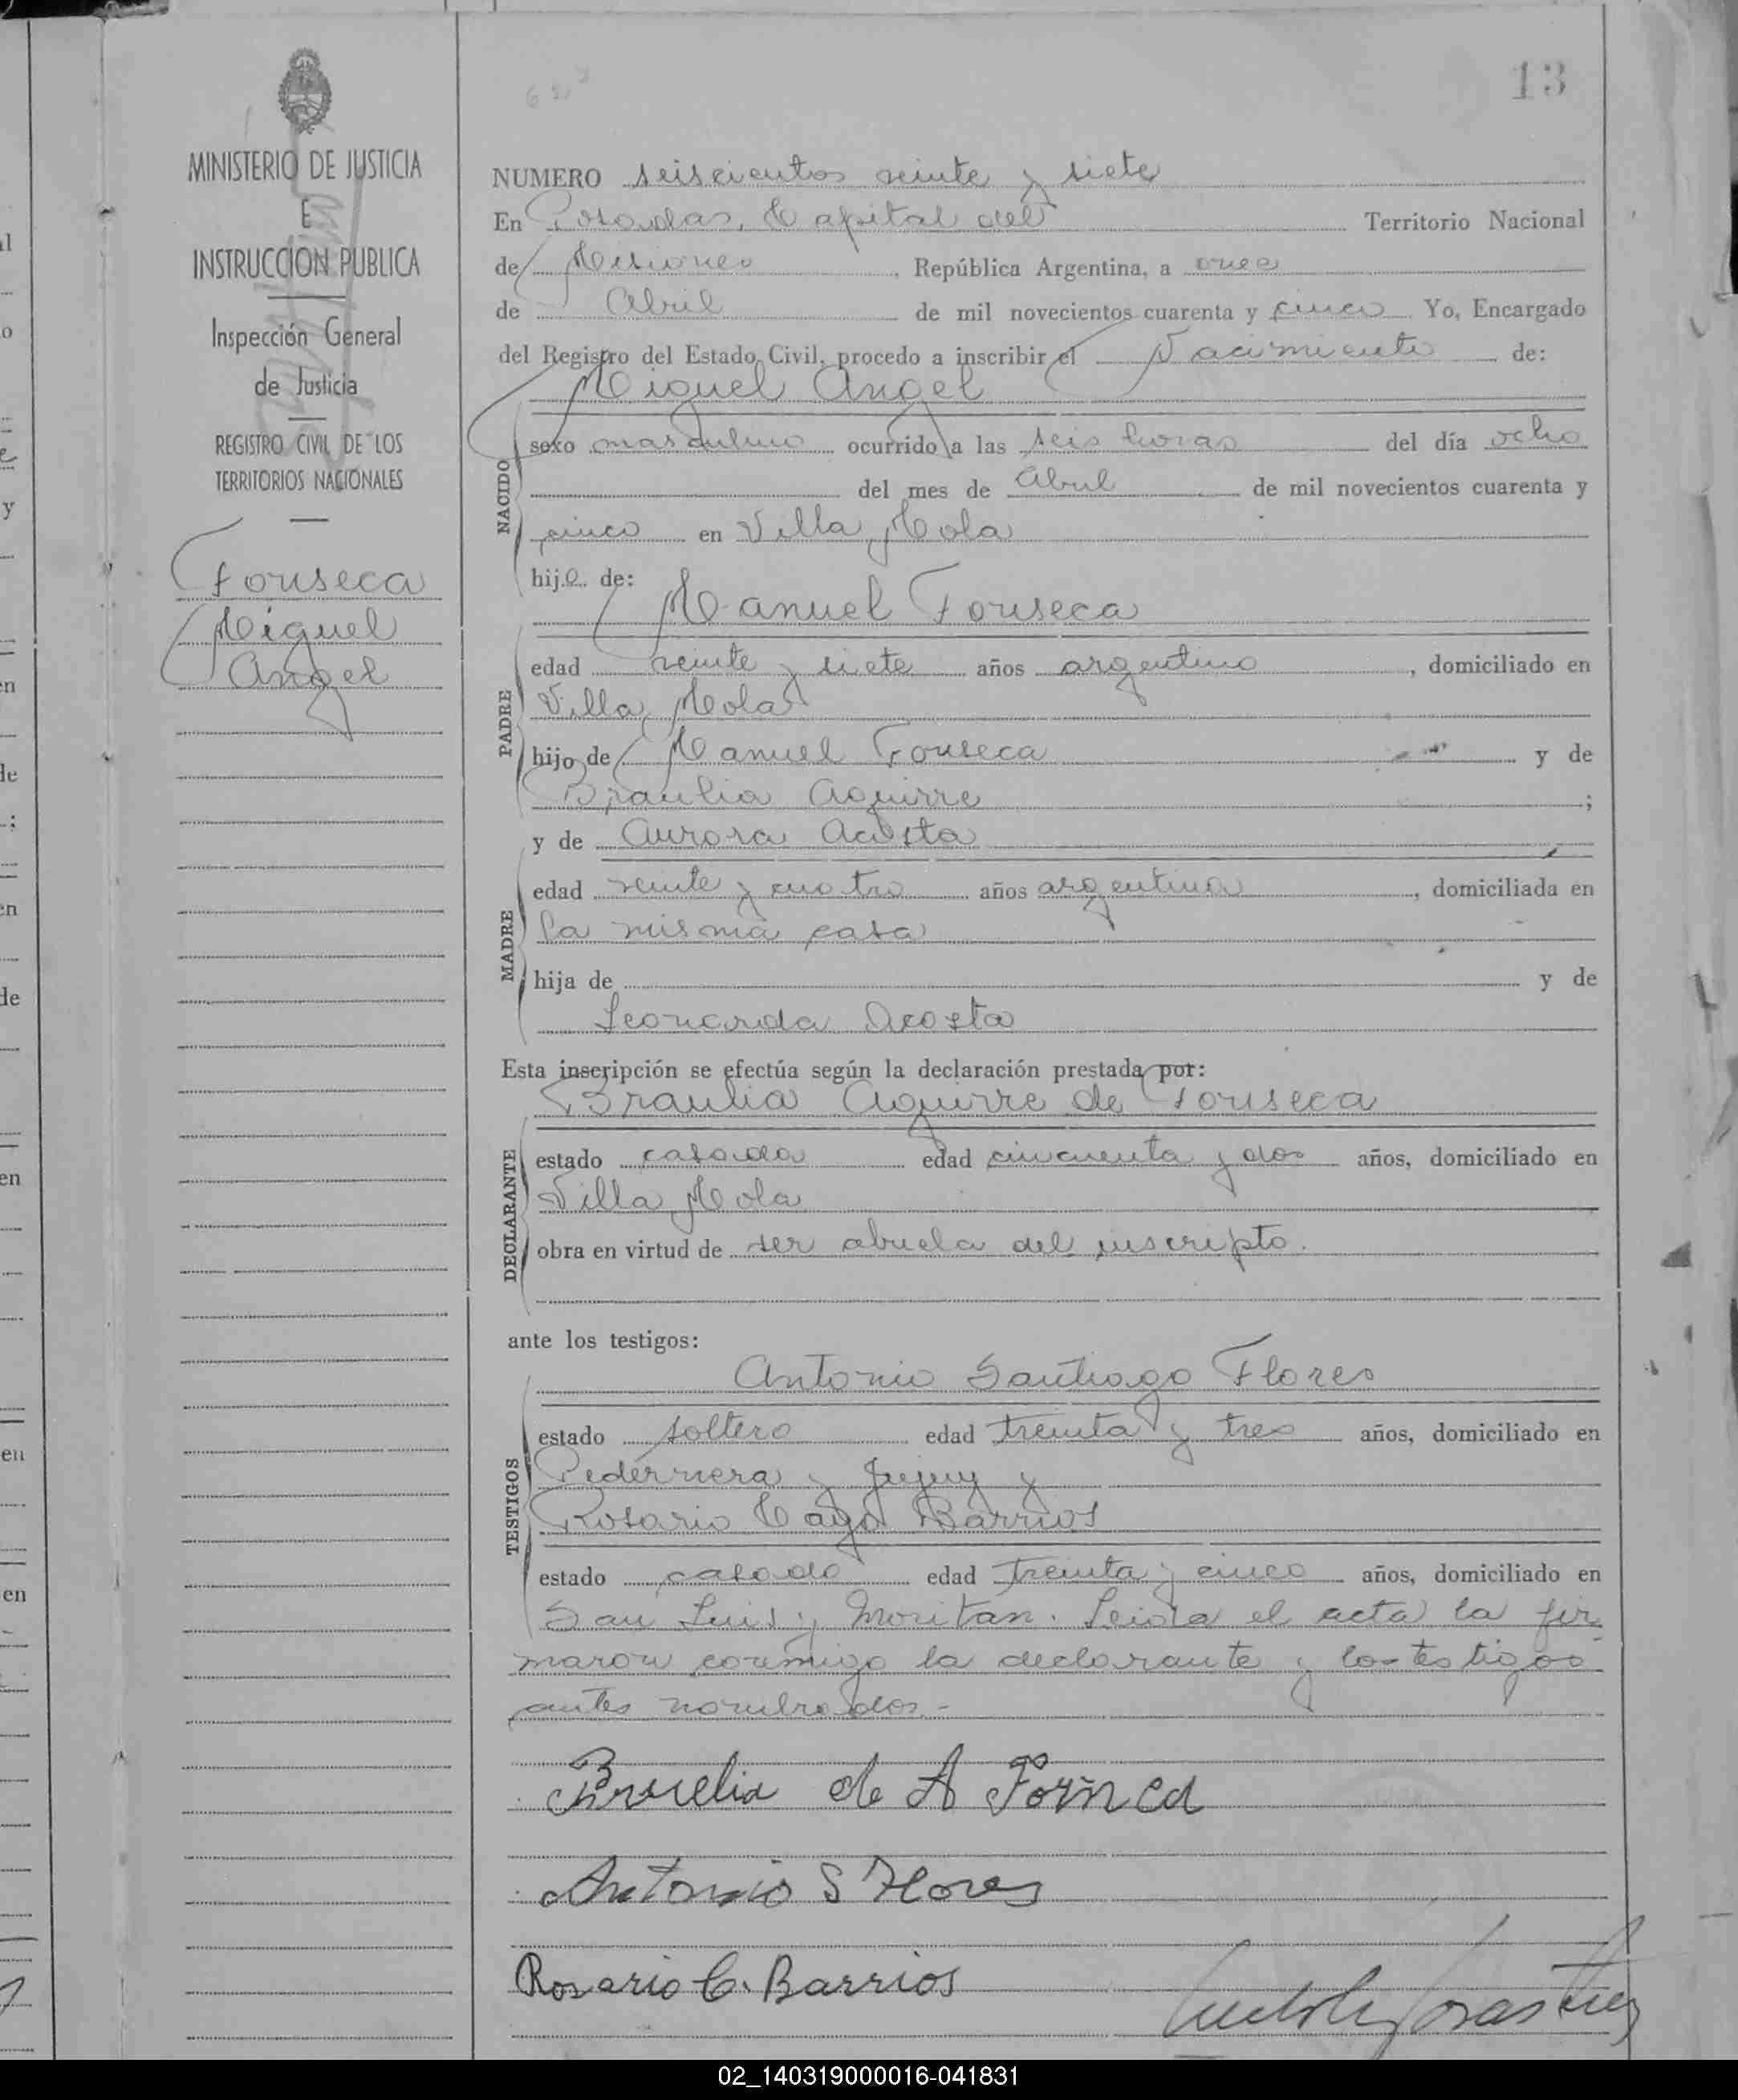 13
627
MINISTERIO DE JUSTICIA
E
INSTRUCCION PUBLICA
Inspección General
de Justicia
REGISTRO CIVIL DE LOS
TERRITORIOS NACIONALES
Fonseca
Miguel
Angel
NUMERO seiscientos veinte y siete
En Posadas, Capital del Territorio Nacional
de Misiones, República Argentina, a once
de Abril de mil novecientos cuarenta y cinco Yo, Encargado
del Registro del Estado Civil, procedo a inscribir el Nacimiento de:
Miguel Angel
NACIDO
sexo masculino ocurrido a las seis horas del día ocho
del mes de Abril de mil novecientos cuarenta y
cinco en Villa Mola
hijo de:
Manuel Fonseca
PADRE
edad veinte y siete años argentino, domiciliado en
Villa Mola
hijo de Manuel Fonseca y de
Braulia Aguirre ;
y de Aurora Acosta
MADRE
edad veinte y cuatro años argentina, domiciliada en
la misma casa
hija de y de
Leonarda Acosta
Esta inscripción se efectúa según la declaración prestada por:
Braulia Aguirre de Fonseca
DECLARANTE
estado casada edad cincuenta y dos años, domiciliado en
Villa Mola
obra en virtud de ser abuela del inscripto.
ante los testigos:
Antonio Santiago Flores
TESTIGOS
estado soltero edad treinta y tres años, domiciliado en
Pedernera y Jujuy y
Rosario Cayo Barrios
estado casado edad treinta y cinco años, domiciliado en
San Luis y Moritan. Leida el acta la fir
maron conmigo la declarante y los testigos
antes nombrados.-
de A
Antonio S Flores
Rosario C. Barrios
02_140319000016-041831